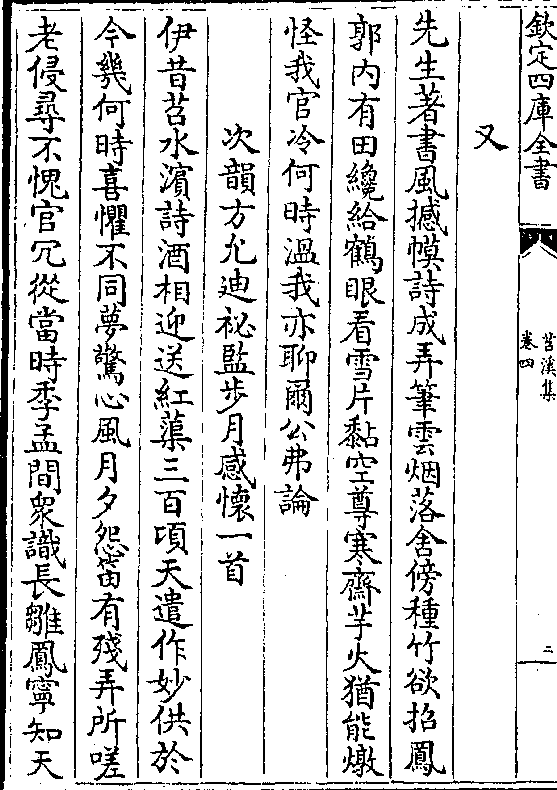 欽定四庫全書
苕溪集
卷四
三
又
先生著書風撼幙詩成弄筆雲烟落舍傍種竹欲招鳳
郭内有田纔給鶴眼看雪片黏空尊寒齋芋火猶能燉
怪我官冷何時溫我亦聊爾公弗論
次韻方允迪祕監步月感懷一首
伊昔苕水濱詩酒相迎送紅蕖三百頃天遣作妙供於
今幾何時喜懼不同夢驚心風月夕怨笛有殘弄所嗟
老侵尋不愧官冗從當時季孟間衆識長雛鳳寧知天